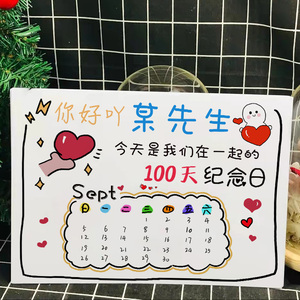 你好吖某先生
今天是我们在一起的
100天纪念日
Sept
日 一 二 三 四 五 六
1 2 3 4
5 6 7 8 9 10 11
12 13 14 15 16 17 18
19 20 21 22 23 24 25
26 27 28 29 30